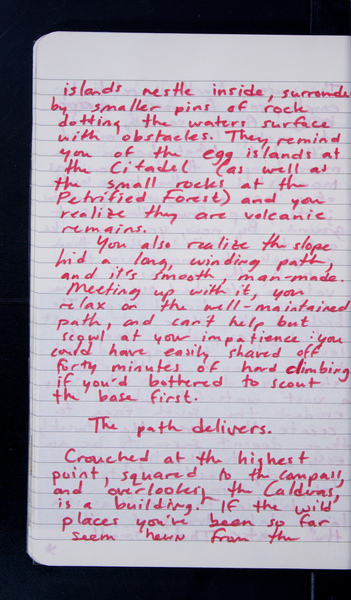 islands nestle inside, surrounde
by smaller pins of rock
dotting the waters surface
with obstacles. They remind
you of the egg islands at
the Citadel (as well as
the small rocks at the
Petrified Forest) and you
realize they are volcanic
remains.
You also realize the slope
hid a long, winding path,
and it's smooth, man-made.
Meeting up with it, you
relax on the well-maintained
path, and can't help but
scowl at your impatience: you
could have easily shaved off
forty minutes of hard climbing
if you'd bothered to scout
the base first.
The path delivers.
Crouched at the highest
point, squared to the compass,
and overlooking the Calderas,
is a building. If the wild
places you've been so far
seem hewn from the